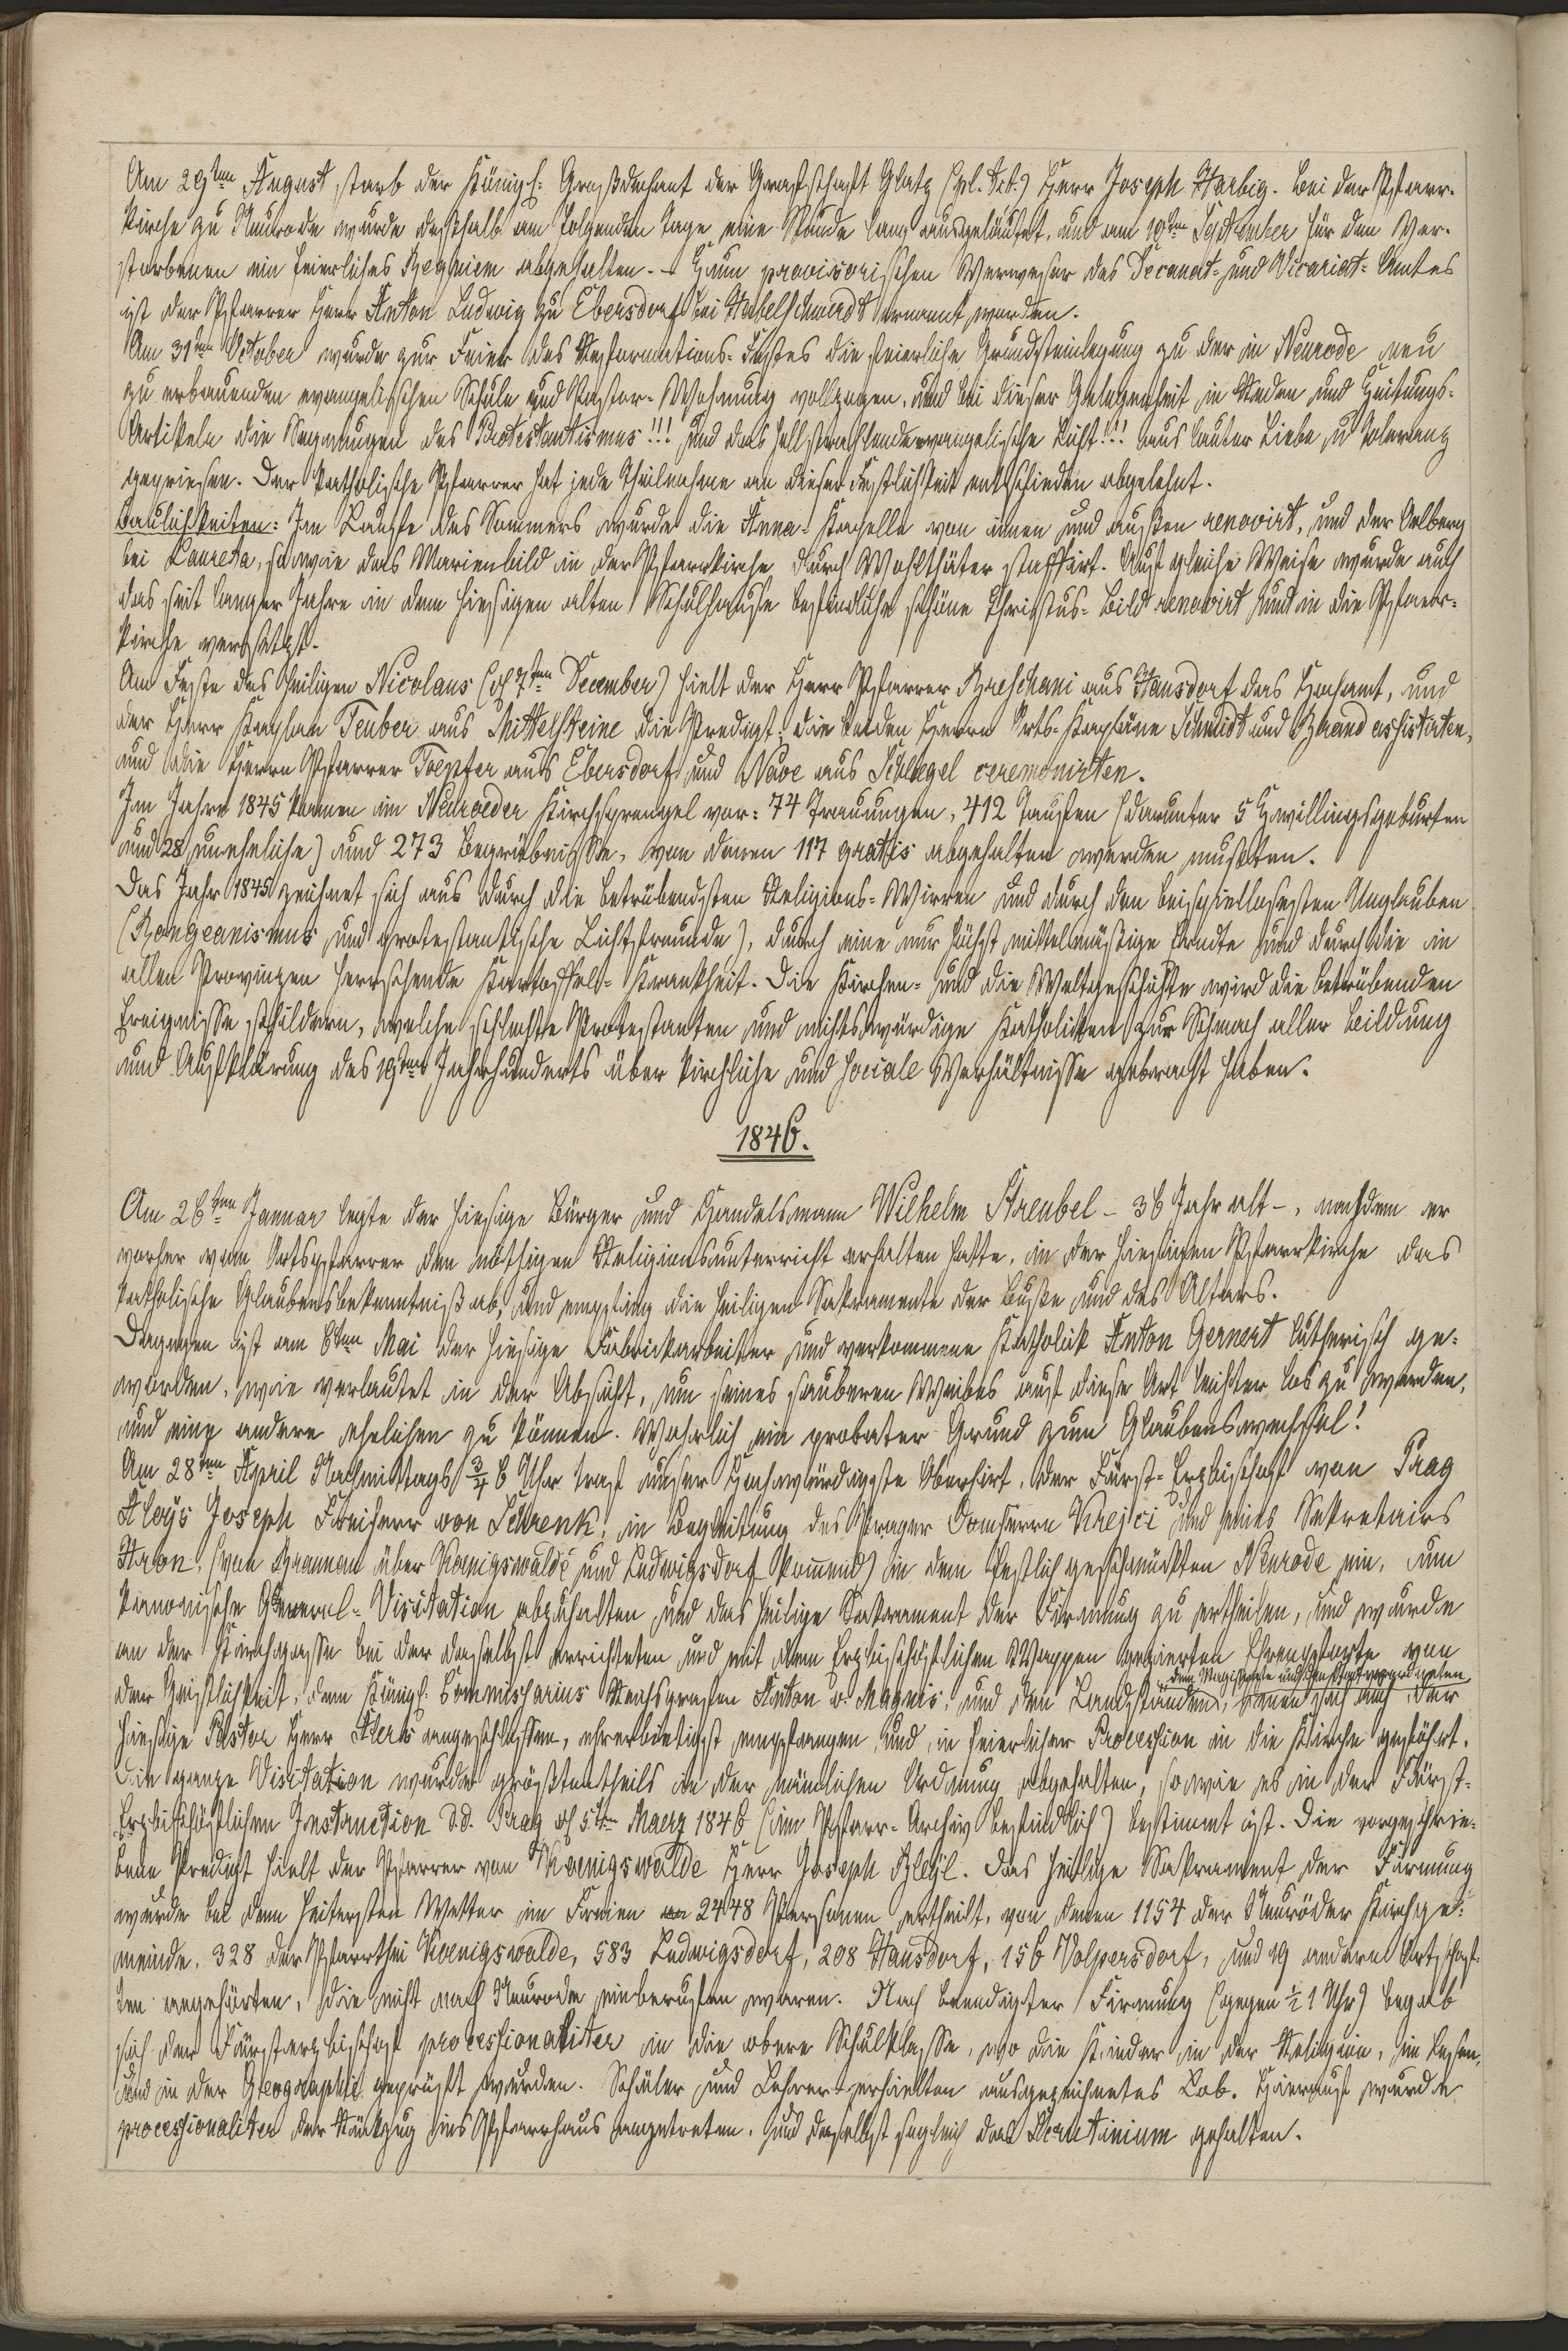 Am 29ten August starb der Königl: Großdechant der Grafschaft Glatz (pl. tit.) Herr Joseph Harbig. Bei der Pfarr-
kirche zu Neurode wurde deßhalb am folgenden Tage eine Stunde lang ausgeläutet, und am 10ten September für den Ver-
storbenen ein feierliches Requiem abgehalten. – Zum provisorischen Verweser des Decanat- und Vicariat-Amtes
ist der Pfarrer Herr Anton Ludwig zu Ebersdorf bei Habelschwerdt ernannt worden.
Am 31ten October wurde zur Feier des Reformations-Festes die feierliche Grundsteinlegung zu der in Neurode neu
zu erbauenden evangelischen Schule und Pastor-Wohnung vollzogen, und bei dieser Gelegenheit in Reden und Zeitungs-
Artikeln die Segnungen des Protestantismus!!! und das hellstrahlende evangelische Licht!!! aus lauter Liebe u Toleranz
gepriesen. Der katholische Pfarrer hat jede Theilnahme an dieser Festlichkeit entschieden abgelehnt.
Baulichkeiten: Im Laufe des Sommers wurde die Anna-Kapelle von innen und außen renovirt, und der Oelberg
bei Laureta, sowie das Marienbild in der Pfarrkirche durch Wohlthäter staffirt. Auf gleiche Weise wurde auch
das seit langer Jahre in dem hiesigen alten Schulhause befindliche schöne Christus-Bild renovirt und in die Pfarr-
kirche versetzt.
Am Feste des heiligen Nicolaus (d 7ten December) hielt der Herr Pfarrer Breschani aus Hausdorf das Hochamt, und
der Herr Kaplan Teuber aus Mittelsteine die Predigt; die beiden Herrn Orts-Kapläne Schmidt und Brand assistirten,
und die Herrn Pfarrer Toepfer aus Ebersdorf und Nave aus Schlegel ceremonirten.
Im Jahre 1845 kamen im Neuroeder Kirchsprengel vor: 74 Trauungen, 412 Taufen (darunter 5 Zwillingsgeburten
und 28 uneheliche) und 273 Begräbnisse, von denen 117 gratis abgehalten werden mußten.
Das Jahr 1845 zeichnet sich aus durch die betrübendsten Religions-Wirren und durch den beispiellosesten Unglauben
(Rongeanismus und protestantische Lichtfreunde), durch eine nur höchst mittelmäßige Erndte und durch die in
allen Provinzen herrschende Kartoffel-Krankheit. Die Kirchen- und die Weltgeschichte wird die betrübenden
Ereignisse schildern, welche schlechte Protestanten und nichtswürdige Katholiken zur Schmach aller Bildung
und Aufklärung des 19ten Jahrhunderts über kirchliche und sociale Verhältnisse gebracht haben.
1846.
Am 26ten Januar legte der hiesige Bürger und Handelsmann Wilhelm Streubel – 36 Jahr alt –, nachdem er
vorher vom Ortspfarrer den nöthigen Religionsunterricht erhalten hatte, in der hiesigen Pfarrkirche das
katholische Glaubensbekenntniß ab, und empfing die heiligen Sakramente der Buße und des Altars.
Dagegen ist am 8ten Mai der hiesige Fabrikarbeiter und verkommene Katholik Anton Gernert lutherisch ge-
worden, wie verlautet in der Absicht, um seines sauberen Weibes auf diese Art leichter los zu werden,
und eine andere ehelichen zu können. Wahrlich ein probater Grund zum Glaubenswechsel!
Am 28ten April Nachmittags 3/4 6 Uhr traf unser Hochwürdigste Oberhirt, der Fürst-Erzbischof von Prag
Aloys Joseph Freiherr von Schrenk, in Begleitung des Prager Domherrn Krejci und seines Sekretairs
Stron, (von Braunau über Koenigswalde und Ludwigsdorf kommend) in dem festlich geschmückten Neurode ein, um
kanonische General-Visitation abzuhalten und das heilige Sakrament der Firmung zu ertheilen, und wurde
an der Kirchgasse bei der daselbst errichteten und mit dem Erzbischöflichen Wappen gezierten Ehrenpforte von
dem Magistrate und den Stadtverordneten
der Geistlichkeit, dem Königl. Commissarius Reichsgrafen Anton v. Magnis, und den Landständen, denen sich auch der
hiesige Pastor Herr Alers angeschlossen, ehrerbietigst empfangen, und in feierlicher Procession in die Kirche geführt.
Die ganze Visitation wurde größtentheils in der nämlichen Ordnung abgehalten, sowie es in der Fürst-
Erzbischöflichen Instruction d.d. Prag d 5ten Maerz 1846 (im Pfarr-Archiv befindlich) bestimmt ist. Die vorgeschrie-
bene Predigt hielt der Pfarrer von Koenigswalde Herr Joseph Bleyl. Das heilige Sakrament der Firmung
wurde bei dem heitersten Wetter im Freien 2448 Personen ertheilt, von denen 1154 der Neuröder Kirchge-
meinde, 328 der Pfarrthei Koenigswalde, 583 Ludwigsdorf, 208 Hausdorf, 156 Volpersdorf, und 19 andern Ortschaf-
ten angehörten, die nicht nach Neurode einberufen waren. Nach beendigter Firmung (gegen 1/2 1 Uhr) begab
sich der Fürsterzbischof processionaliter in die obere Schulklasse, wo die Kinder in der Religion, im Lesen,
und in der Geographie geprüft wurden. Schüler und Lehrer erhielten ausgezeichnetes Lob. Hierauf wurde
processionaliter der Rückzug ins Pfarrhaus angetreten, und daselbst sogleich das Scrutinium gehalten.